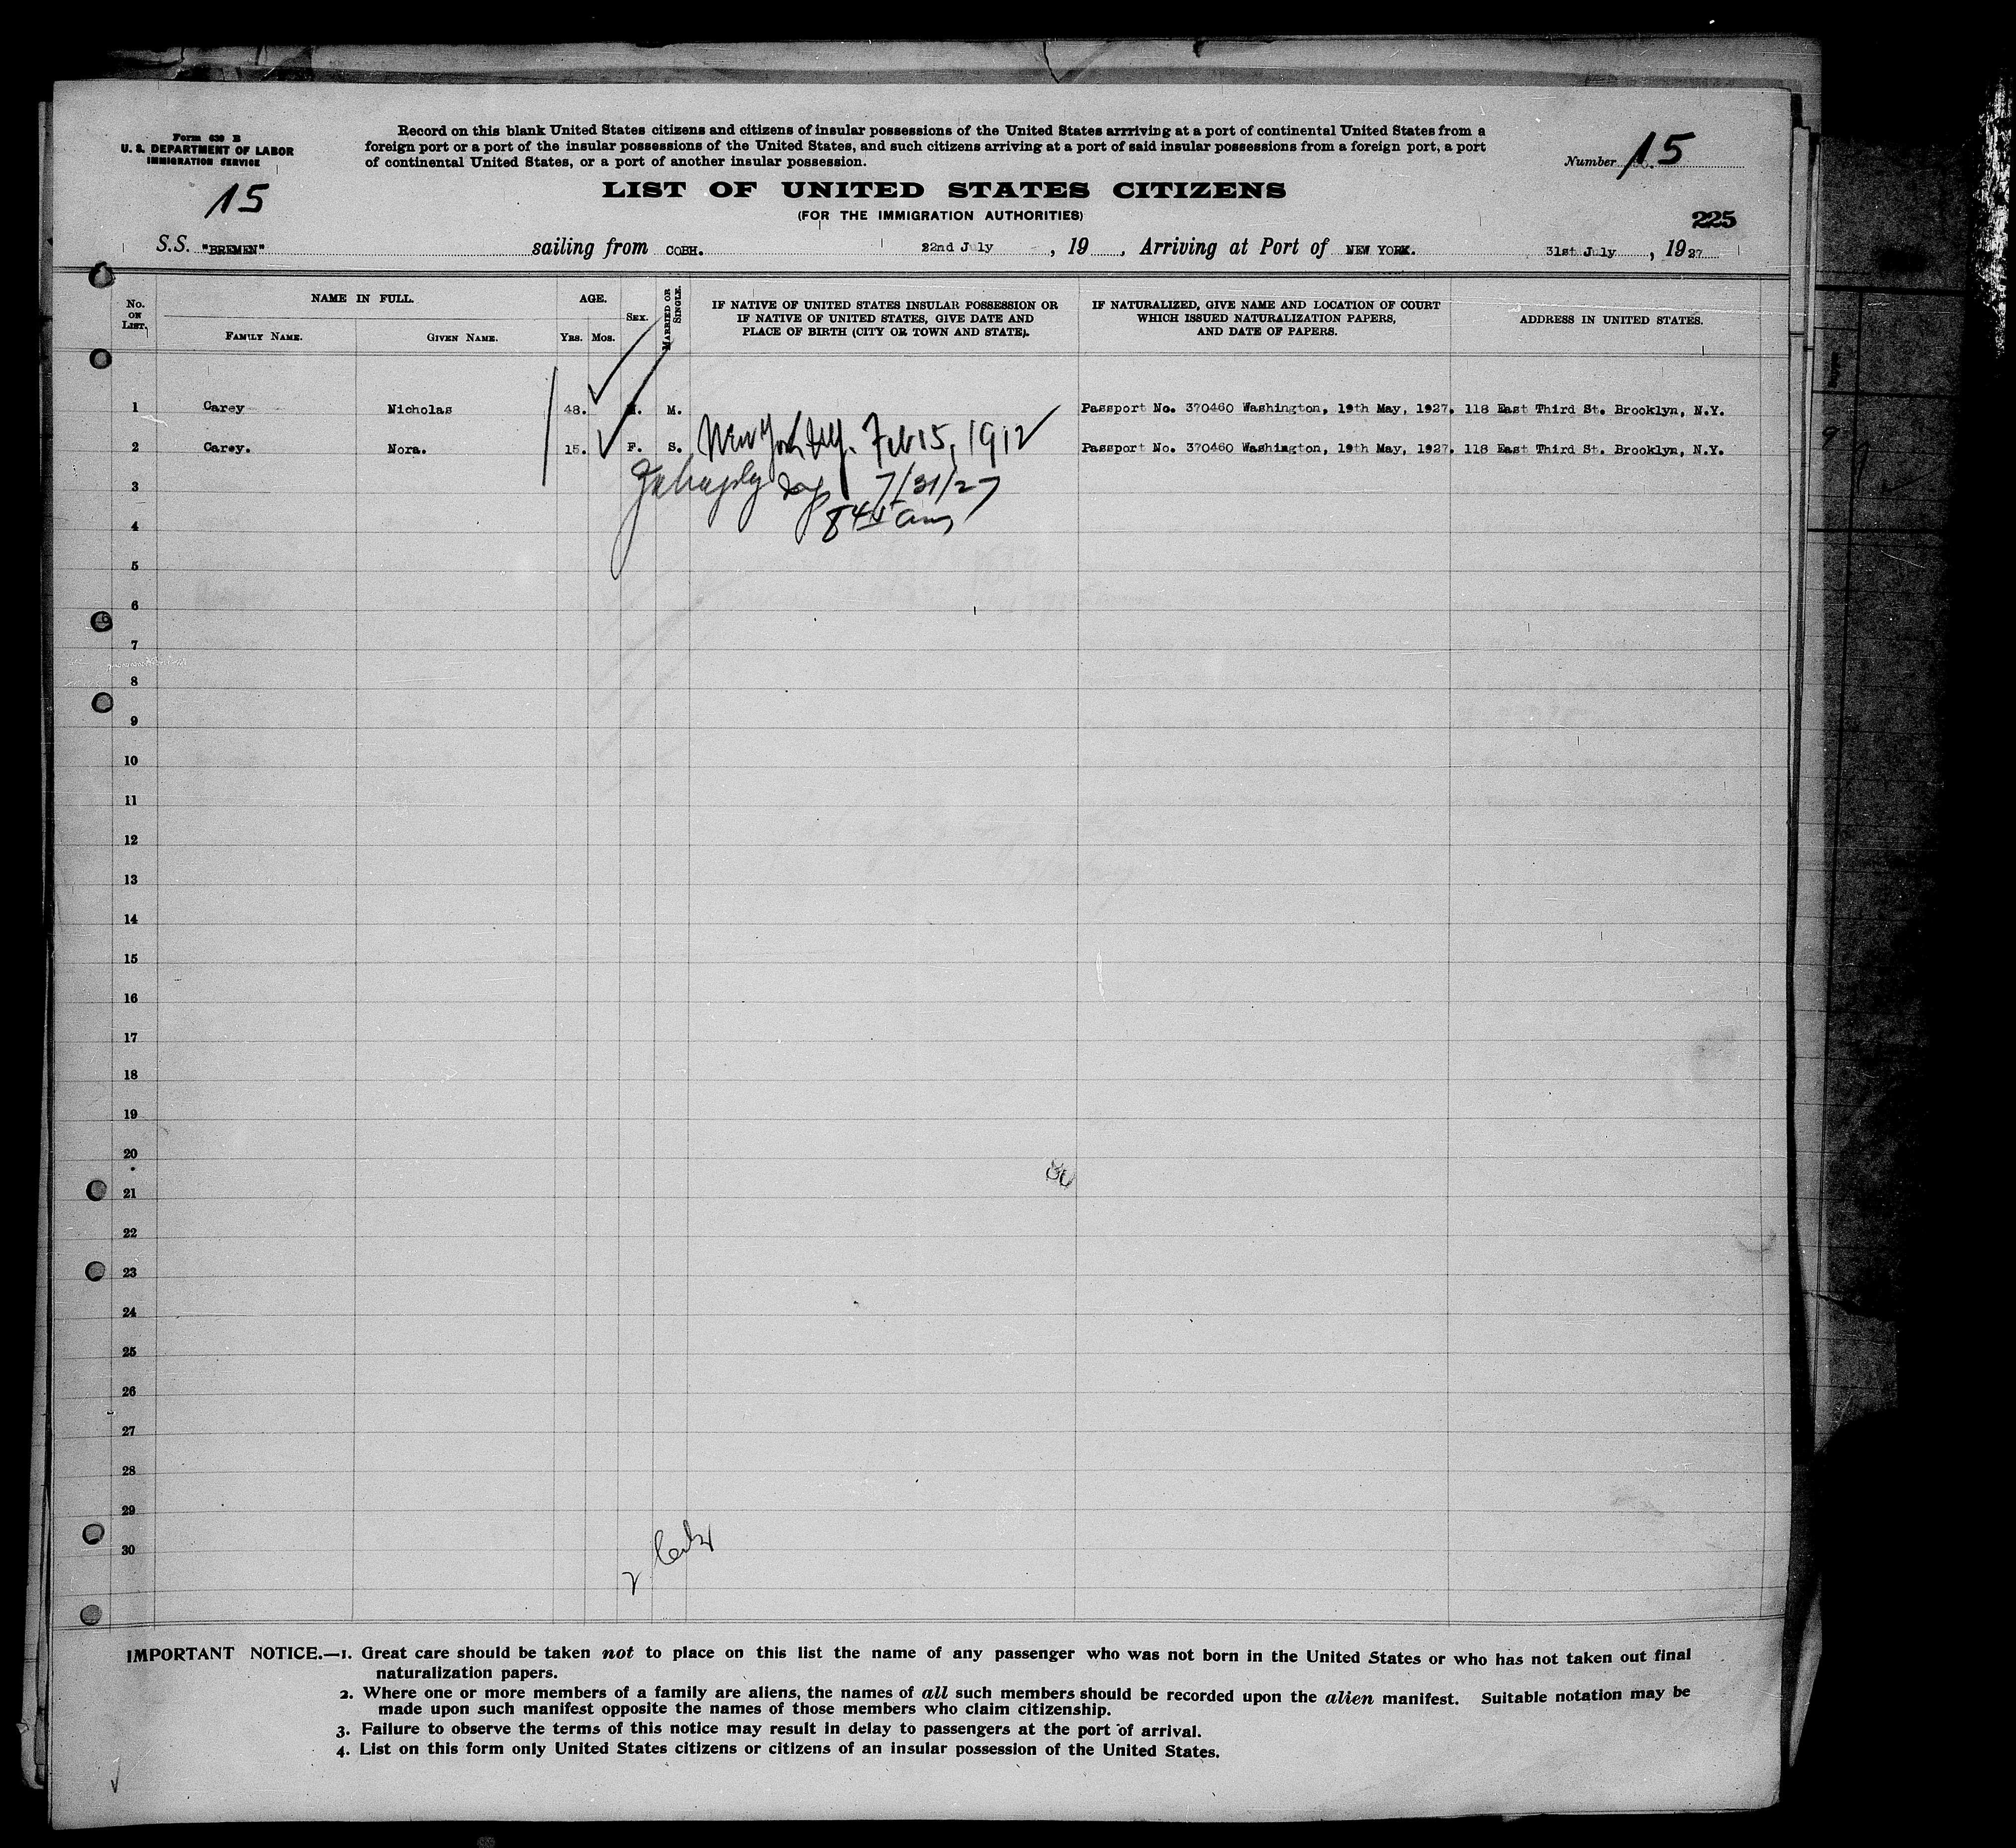 Form 630 B
U. S. DEPARTMENT OF LABOR
IMMIGRATION SERVICE
15
Record on this blank United States citizens and citizens of insular possessions of the United States arrriving at a port of continental United States from a
foreign port or a port of the insular possessions of the United States, and such citizens arriving at a port of said insular possessions from a foreign port, a port
of continental United States, or a port of another insular possession.
Number 15
LIST OF UNITED STATES CITIZENS
(FOR THE IMMIGRATION AUTHORITIES)
225
S.S. "BREMEN" sailing from COBH. 22nd July, 19, Arriving at Port of NEW YORK. 31st July, 1927
No. ON LIST. NAME IN FULL. AGE. SEX. MARRIED OR SINGLE. IF NATIVE OF UNITED STATES INSULAR POSSESSION OR IF NATIVE OF UNITED STATES, GIVE DATE AND PLACE OF BIRTH (CITY OR TOWN AND STATE). IF NATURALIZED, GIVE NAME AND LOCATION OF COURT WHICH ISSUED NATURALIZATION PAPERS, AND DATE OF PAPERS. ADDRESS IN UNITED STATES.
FAMILY NAME. GIVEN NAME. YRS. MOS.
1 Carey Nicholas 48. M. M. Passport No. 370460 Washington, 19th May, 1927. 118 East Third St. Brooklyn, N.Y.
2 Carey. Nora. 15. F. S. New York NY. Feb 15, 1912 Passport No. 370460 Washington, 19th May, 1927. 118 East Third St. Brooklyn, N.Y.
3 7/31/27
4 845 am
5
6
7
8
9
10
11
12
13
14
15
16
17
18
19
20
21
22
23
24
25
26
27
28
29
30
2
IMPORTANT NOTICE.—1. Great care should be taken not to place on this list the name of any passenger who was not born in the United States or who has not taken out final
naturalization papers.
2. Where one or more members of a family are aliens, the names of all such members should be recorded upon the alien manifest. Suitable notation may be
made upon such manifest opposite the names of those members who claim citizenship.
3. Failure to observe the terms of this notice may result in delay to passengers at the port of arrival.
4. List on this form only United States citizens or citizens of an insular possession of the United States.